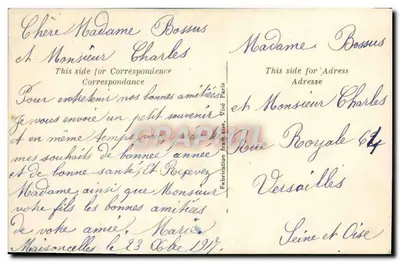 Chère Madame Bossus
et Monsieur Charles
This side for Correspondence
Correspondance
Pour entretenir nos bonnes amitiées
Je vous envoie un petit souvenir
et en même temps
mes souhaits de bonne année
et de bonne santé. Et Recevez
Madame, ainsi que Monsieur
votre fils les bonnes amitiées
de votre amie, Marie
Maisoncelles le 23 1917.
Fabrication française, Visé Paris
Madame Bossus
This side for Adress
Adresse
et Monsieur Charles
Rue Royale 64
Versailles
Seine et Oise